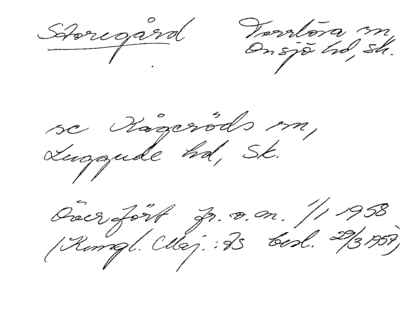 Storegård Torrlösa sn,
Onsjö hd, Sk.
se Kågeröds sn,
Luggude hd, Sk.
Överfört fr.o.m. 1/1 1958
(Kungl. Maj:ts besl. 29/3 1957)